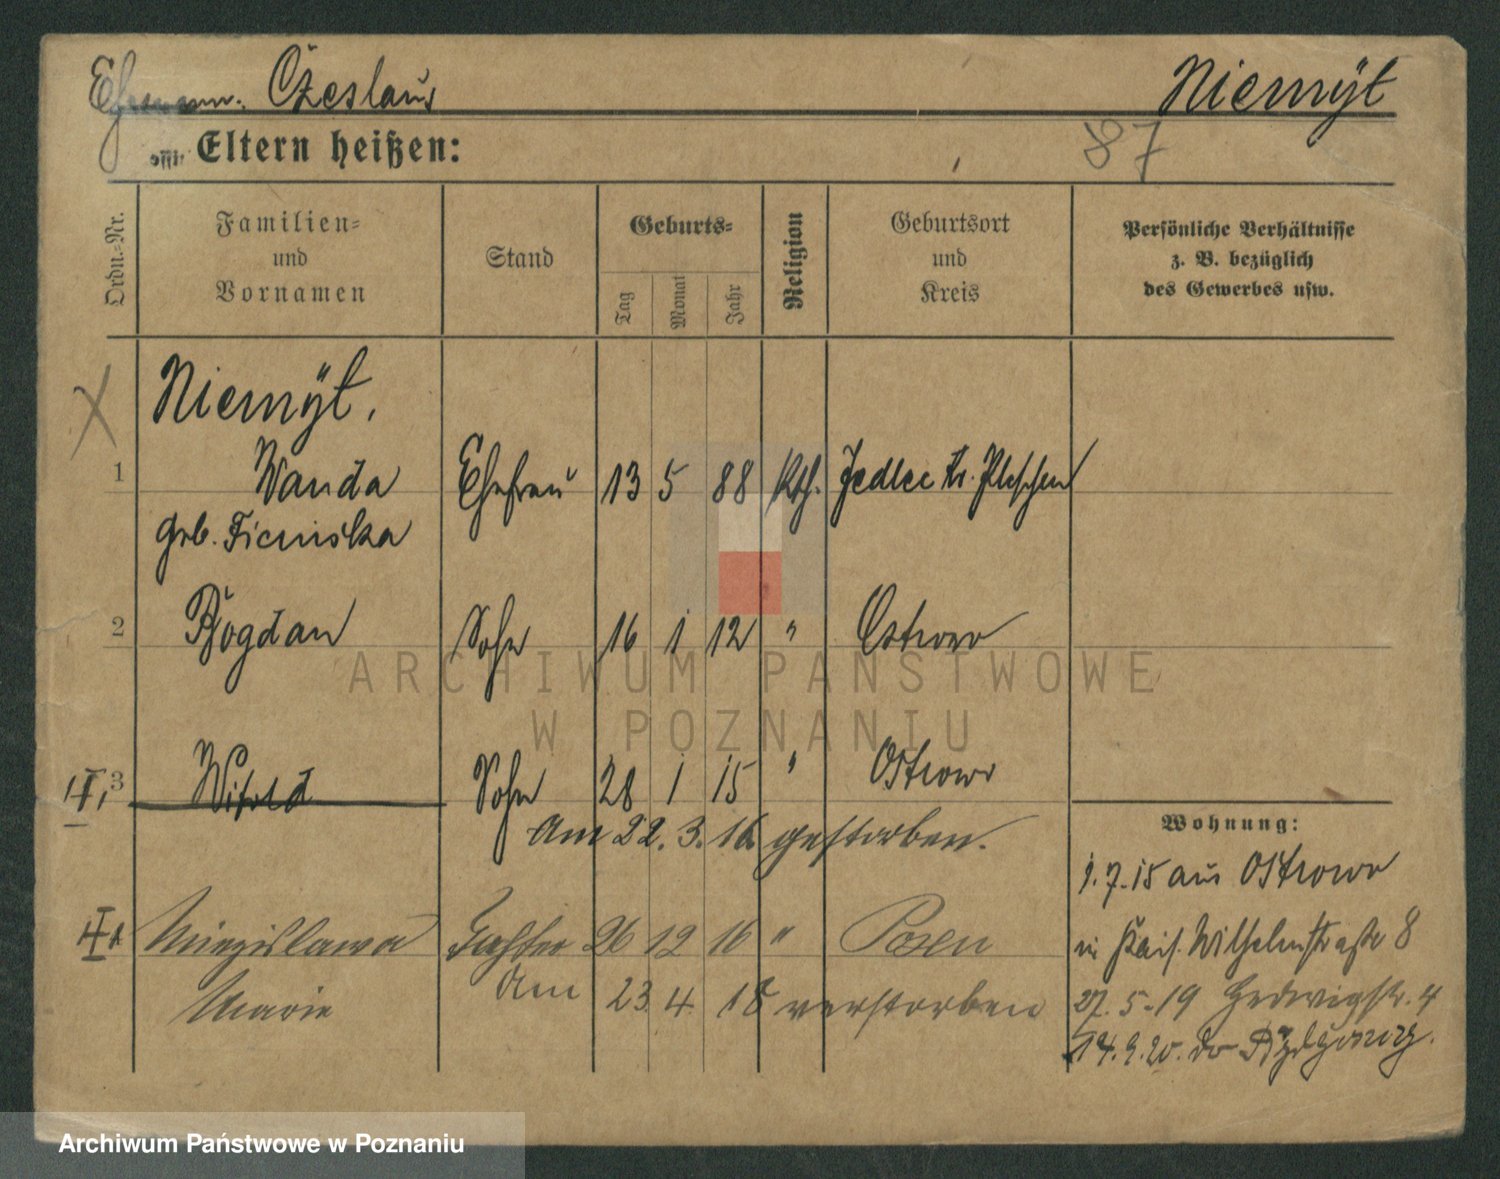 Ehemann: Czeslaus Niemÿt
Eltern heißen: 87
Ordn.-Nr.
Familien-
und
Vornamen
Stand
Geburts-
Tag
Monat
Jahr
Religion
Geburtsort
und
Kreis
Persönliche Verhältnisse
z. B. bezüglich
des Gewerbes usw.
Niemÿt,
1 Wanda Ehefrau 13 5 88 Kth. Jedlec Kr. Pleschen
geb. Ficinska
2 Bogdan Sohn 16 1 12 " Ostrowo
3 Witold Sohn 28 1 15 " Ostrowo
Am 22. 3. 16 gestorben.
Miezislawa Tochter 26 12 16 " Posen
Marie
Am 23 4 18 verstorben
Wohnung:
1.7.15 aus Ostrowo
in Kais. Wilhelmstraße 8
27.5.19 Hedwigstr. 4
14.9.20. do Bydgoszcz.
ARCHIWUM PAŃSTWOWE
W POZNANIU
Archiwum Państwowe w Poznaniu